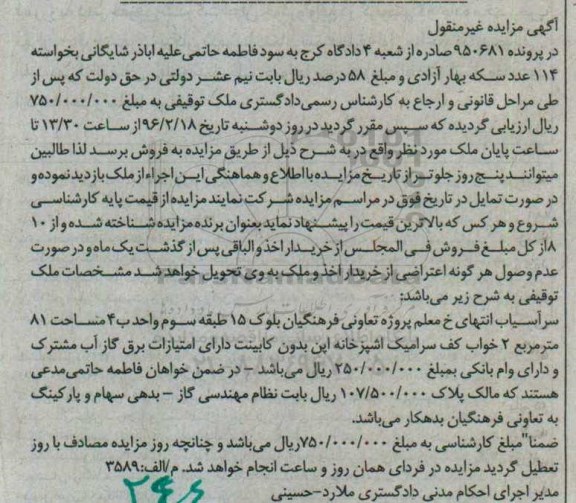 آگهی مزایده غیرمنقول
در پرونده ۹۵۰۶۸۱ صادره از شعبه ۴ دادگاه کرج به سود فاطمه حاتمی علیه اباذر شایگانی بخواسته
۱۱۴ عدد سکه بهار آزادی و مبلغ ۵۸ درصد ریال بابت نیم عشر دولتی در حق دولت که پس از
طی مراحل قانونی و ارجاع به کارشناس رسمی دادگستری ملک توقیفی به مبلغ ۷۵۰/۰۰۰/۰۰۰
ریال ارزیابی گردیده که سپس مقرر گردید در روز دوشنبه تاریخ ۹۶/۲/۱۸ از ساعت ۱۳/۳۰ تا
ساعت پایان ملک مورد نظر واقع در به شرح ذیل از طریق مزایده به فروش برسد لذا طالبین
میتوانند پنج روز جلوتر از تاریخ مزایده با اطلاع و هماهنگی این اجراء از ملک بازدید نموده و
در صورت تمایل در تاریخ فوق در مراسم مزایده شرکت نمایند مزایده از قیمت پایه کارشناسی
شروع و هر کس که بالاترین قیمت را پیشنهاد نماید بعنوان برنده مزایده شناخته شده و از ۱۰
۸از کل مبلغ فروش فی المجلس از خریدار اخذ و الباقی پس از گذشت یک ماه و در صورت
عدم وصول هر گونه اعتراضی از خریدار اخذ و ملک به وی تحویل خواهد شد مشخصات ملک
توقیفی به شرح زیر می‌باشد:
سرآسیاب انتهای خ معلم پروژه تعاونی فرهنگیان بلوک ۱۵ طبقه سوم واحد ب۴ مساحت ۸۱
مترمربع ۲ خواب کف سرامیک آشپزخانه اپن بدون کابینت دارای امتیازات برق گاز آب مشترک
و دارای وام بانکی بمبلغ ۲۵۰/۰۰۰/۰۰۰ ریال می‌باشد – در ضمن خواهان فاطمه حاتمی مدعی
هستند که مالک پلاک ۱۰۷/۵۰۰/۰۰۰ ریال بابت نظام مهندسی گاز – بدهی سهام و پارکینگ
به تعاونی فرهنگیان بدهکار می‌باشد.
ضمنا"مبلغ کارشناسی به مبلغ ۷۵۰/۰۰۰/۰۰۰ریال می‌باشد و چنانچه روز مزایده مصادف با روز
تعطیل گردید مزایده در فردای همان روز و ساعت انجام خواهد شد. م/الف:۳۵۸۹
مدیر اجرای احکام مدنی دادگستری ملارد–حسینی